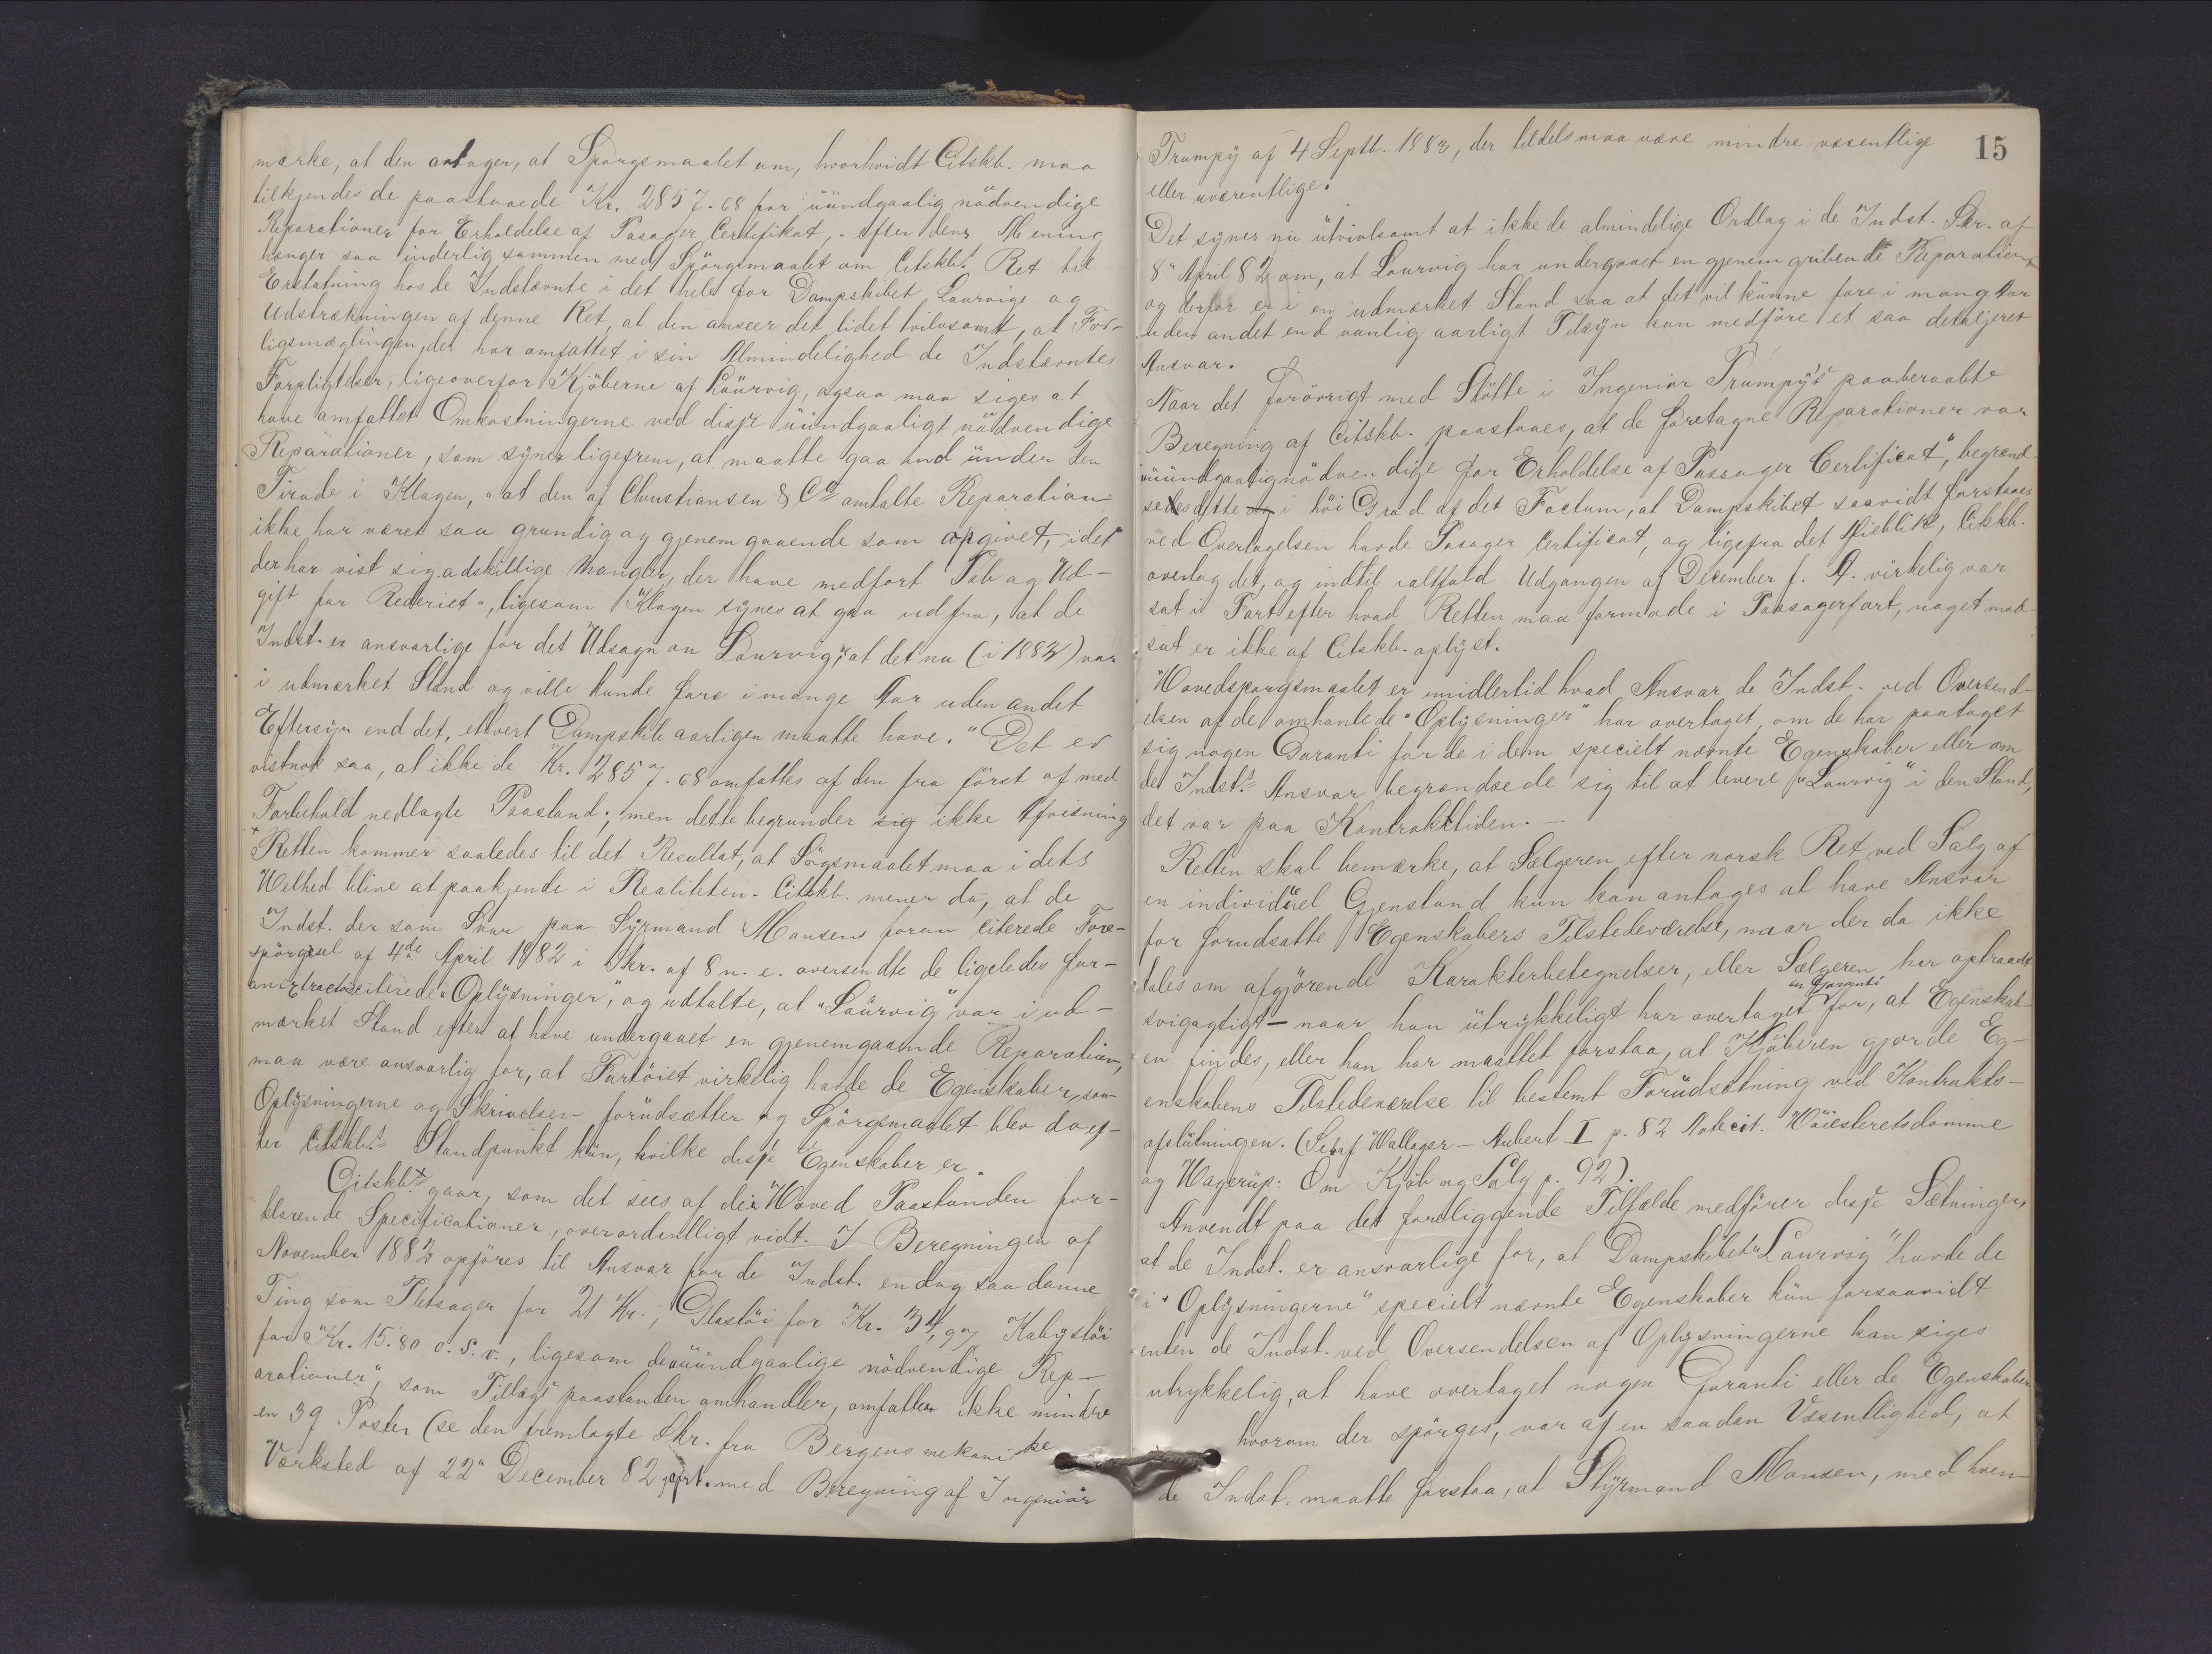 mærke, at den antager, at Spørgsmaalet om, hvorhvidt Citskb. maa
tilkjendes de paastaaede Kr. 2857.68 for "uundgaalig nödvendige
Reparationer for Erholdelse af Pasager Certifikat," efter dens Mening
hænger saa inderlig sammen med Spörgsmaalet om Citskbs Ret til
Erstatning hos de Indstævnte i det hele for Dampskibet Laurvigs og
Udstrækningen af denne Ret, at den anseer det lidet tvilvsomt, at For-
ligsmæglingen, der har omfattet i sin Almindelighed de Indstævntes
Forpligtelser, ligeoverfor Kjöberne af Laurvig, ogsaa maa siges at
have omfattet Omkostningerne ved disse uundgaaligt nödvendige
Reparationer, som synes ligefrem, at maatte gaa ind under den
Tirade i Klagen, "at den af Christiansen & Co omtalte Reparation
ikke har været saa grundig og gjenemgaaende som opgivet, idet
der har vist sig adskillige Mangler, der have medført Tab og Ud-
gift for Rederiet", ligesom Klagen synes at gaa ud fra, at de
Indst. er ansvarlige for det Udsagn om Laurvig, "at det nu (i 1882) var
i udmærket Stand og ville kunde fare i mange Aar uden andet
Eftersyn end det, ethvert Dampskib aarligen maatte have." Det er
vistnok saa, at ikke de Kr. 2857.68 omfattes af den fra först af med
Forbehold nedlagte Paastand; men dette begrunder sig ikke Afvisning
Retten kommer saaledes til det Resultat, at Sögsmaalet maa i dets
Helhed blive at paakjende i Realiteten. Citskb. mener da, at de
Indst. der som Svar paa Syrmand Monsens foran citerede Fore-
spörgsel af 4de April 1882 i Skr. af 8 n. e. oversendte de ligeledes for-
an extractsciterede "Oplysninger," og udtalte, at "Laurvig" var i ud-
mærket Stand efter at have undergaaet en gjenemgaaende Reparation,
maa være ansvarlig for, at Fartöiet virkelig havde de Egenskaber, som
Oplysningerne og Skrivelsen forudsætter og Spörgsmaalet blev da ef-
ter Citskbs Standpunkt kun, hvilke disse Egenskaber er.
Citskbt gaar, som det sees af de i Hoved Paastanden for-
klarende Specificationer, overordentligt vidt. I Beregningen af
November 1882 opføres til Ansvar for de Indst. endog saadanne
Ting som Pletsager for 21 Kr., Glastöi for Kr. 34,97 Kabystöi
for Kr. 15.80 o. s. v., ligesom de "uundgaalige nödvendige Rep-
arationer", som Tillægspaastanden omhandler, omfatter ikke mindre
en 39 Poster (se den fremlagte Skr. fra Bergens mekaniske
Værksted af 22" December 82 jfrt. med Beregning af Ingeniör
15
Trumpy af 4 Septb. 1883, der tildels maa være mindre væsentlige
eller uværentlige.
Det synes nu utvivlsomt at ikke de almindelige Ordlag i de Indst. Skr. af
8" April 82 om, at Laurvig har undergaaet en gjenemgribende Reparation
og derfor er i en udmærket Stand saa at det vil kunne fare i mang Aar
uden andet end vanlig aarligt Tilsyn kan medföre et saa detaljeret
Ansvar.
Naar det forövrigt med Stötte i Ingeniör Trumpy's paaberaabte
Beregning af Citskb. paastaaes, at de foretagne Reparationer var
"uundgaatig nödvendige for Erholdelse af Passager Certificat", begrænd-
sedes dette i höi Grad af det Factum, at Dampskibet saavidt forstaaes
ved Overtagelsen havde Pasager Certificat, og ligefra det Øieblik, Citskb.
overtog det, og indtil ialtfald Udgangen af December f. A. virkelig var
sat i Fart efter hvad Retten maa formode i Passagerfart, noget mod-
sat er ikke af Citskb. oplyst.
Hovedspørgsmaalet er imidlertid hvad Ansvar de Indst. ved Oversend-
elsen af de omhandlede "Oplysninger" har overtaget, om de har paataget
sig nogen Garanti for de i dem specielt nævnte Egenskaber eller om
de Indsts Ansvar begrændsede sig til at levere "Laurvig" i den Stand,
det var paa Kontrakttiden. —
Retten skal bemærke, at Sælgeren efter norsk Ret ved Salg af
en individuel Gjenstand kun kan antages at have Ansvar
for forudsatte Egenskabers Tilstedeværelse, naar der da ikke
tales om afgjörende Karakterbetegnelser, eller Sælgeren har optraadt
svigagtigt — naar han utrykkeligt har overtaget en Garanti for, at Egenskab-
en findes, eller han har maattet forstaa, at Kjöberen gjorde Eg-
enskabens Tilstedeværelse til bestemt Forudsætning ved Kontrakts-
afslutningen. (Se Hallager — Aubert I p. 82 Note cit. Höiesteretsdomme
og Hagerup: Om Kjöb og Salg p. 92).
Anvendt paa det foreliggende Tilfælde medfører disse Sætninger,
at de Indst. er ansvarlige for, at Dampskibet "Laurvig" havde de
i "Oplysningerne" specielt nævnte Egenskaber kun forsaavidt
enten de Indst. ved Oversendelsen af Oplysningerne kan siges
utrykkelig, at have overtaget nogen Garanti eller de Egenskaber
hvorom der spörges, var af en saadan Væsentlighed, at
de Indst. maatte forstaa, at Styrmand Monsen, med hven-